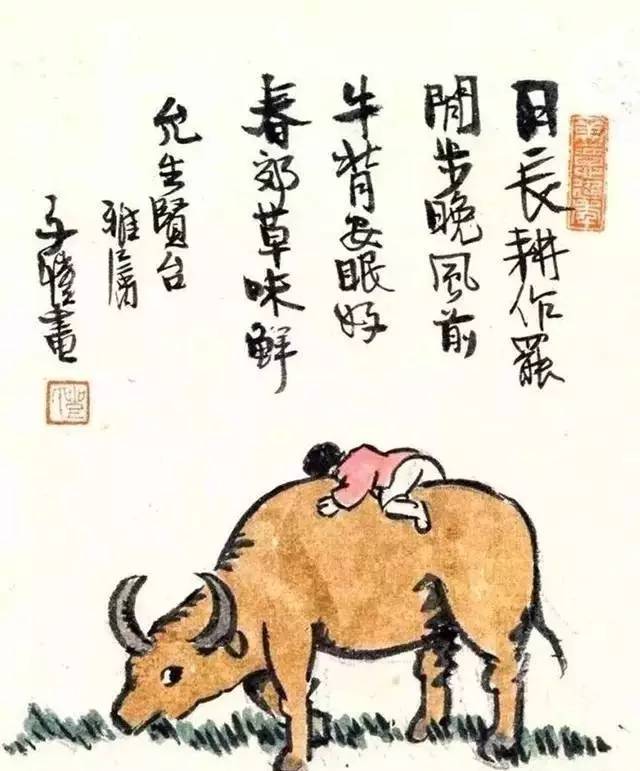 日长耕作罷
閒步晚风前
牛背安眠好
春郊草味鮮
允生賢台
雅属
子愷畫